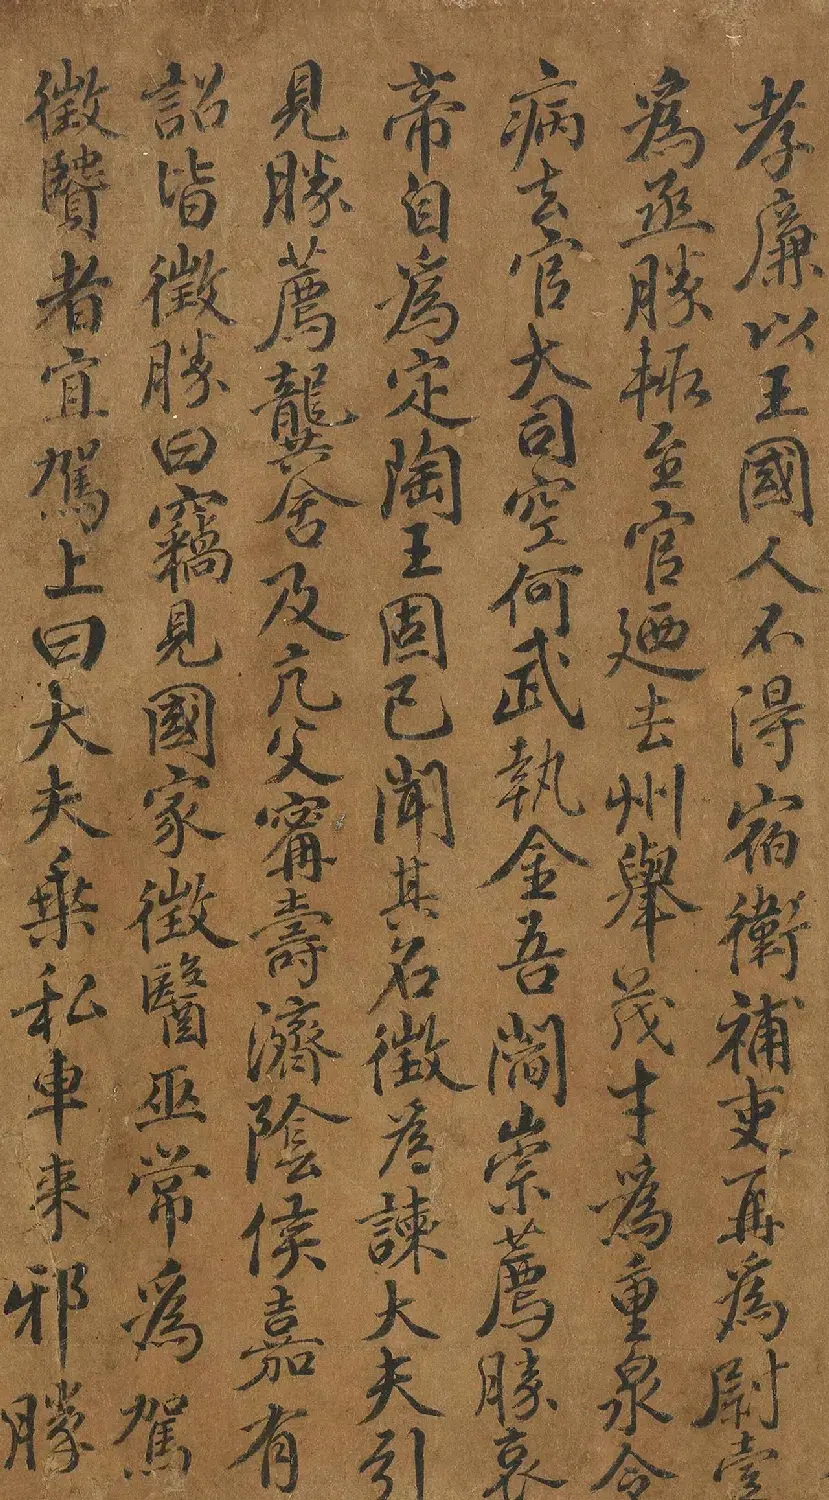 孝廉以王國人不得宿衛補吏再為尉壹
為丞勝輒至官廼去州舉茂才為重泉令
病去官大司空何武執金吾閻崇薦勝哀
帝自為定陶王固已聞其名徵為諫大夫引
見勝薦龔舍及亢父甯壽濟陰侯嘉有
詔皆徵勝曰竊見國家徵醫巫常為駕
徵賢者宜駕上曰大夫乘私車来邪勝